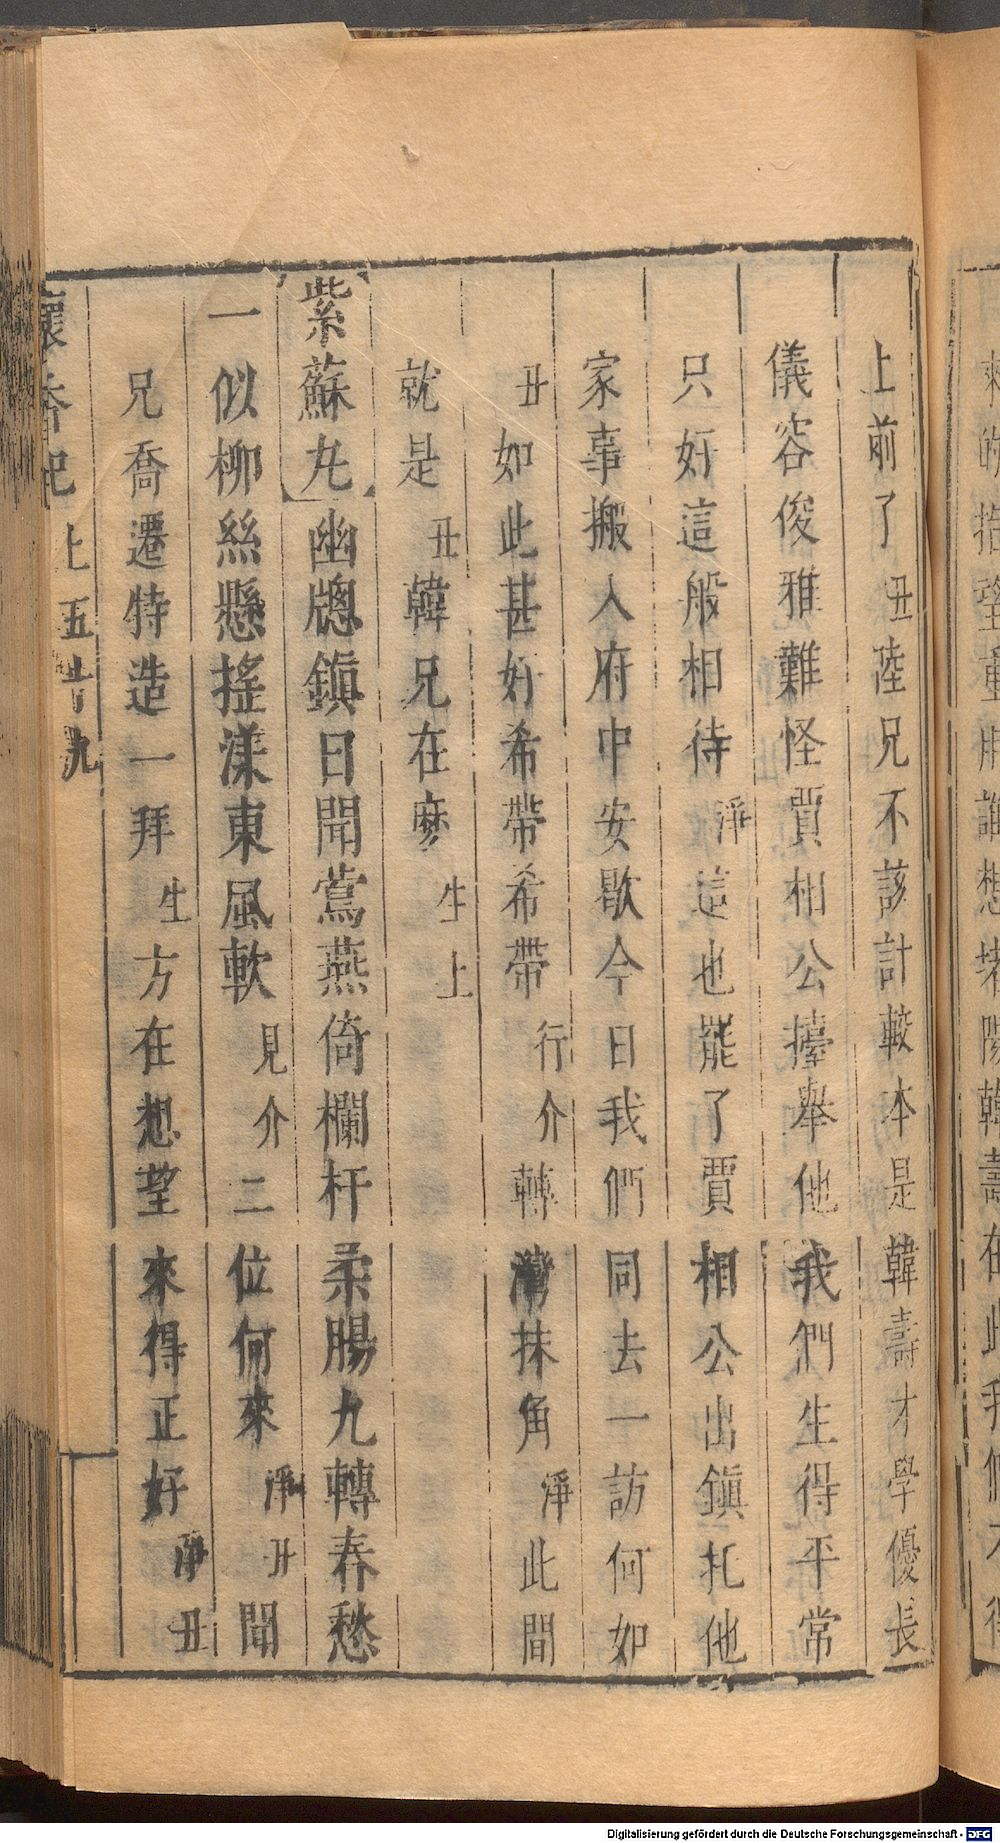 來的指望重用誰想老陽韓壽在此我們不得
上前了丑陸兄不該計較本是韓壽才學優長
儀容俊雅難怪賈相公擡舉他我們生得平常
只好這般相待淨這也罷了賈相公出鎮扎他
家事搬入府中安歇今日我們同去一訪何如
丑如此甚好希帶希帶行介轉灣抹角淨此間
就是丑韓兄在麼生上
紫蘇丸幽牕鎮日聞鶯燕倚欄杆柔腸九轉春愁
一似柳絲懸搖漾東風軟見介二位何來淨丑聞
兄喬遷特造一拜生方在想望來得正好淨丑
懷香記上五十九
Digitalisierung gefördert durch die Deutsche Forschungsgemeinschaft - DFG